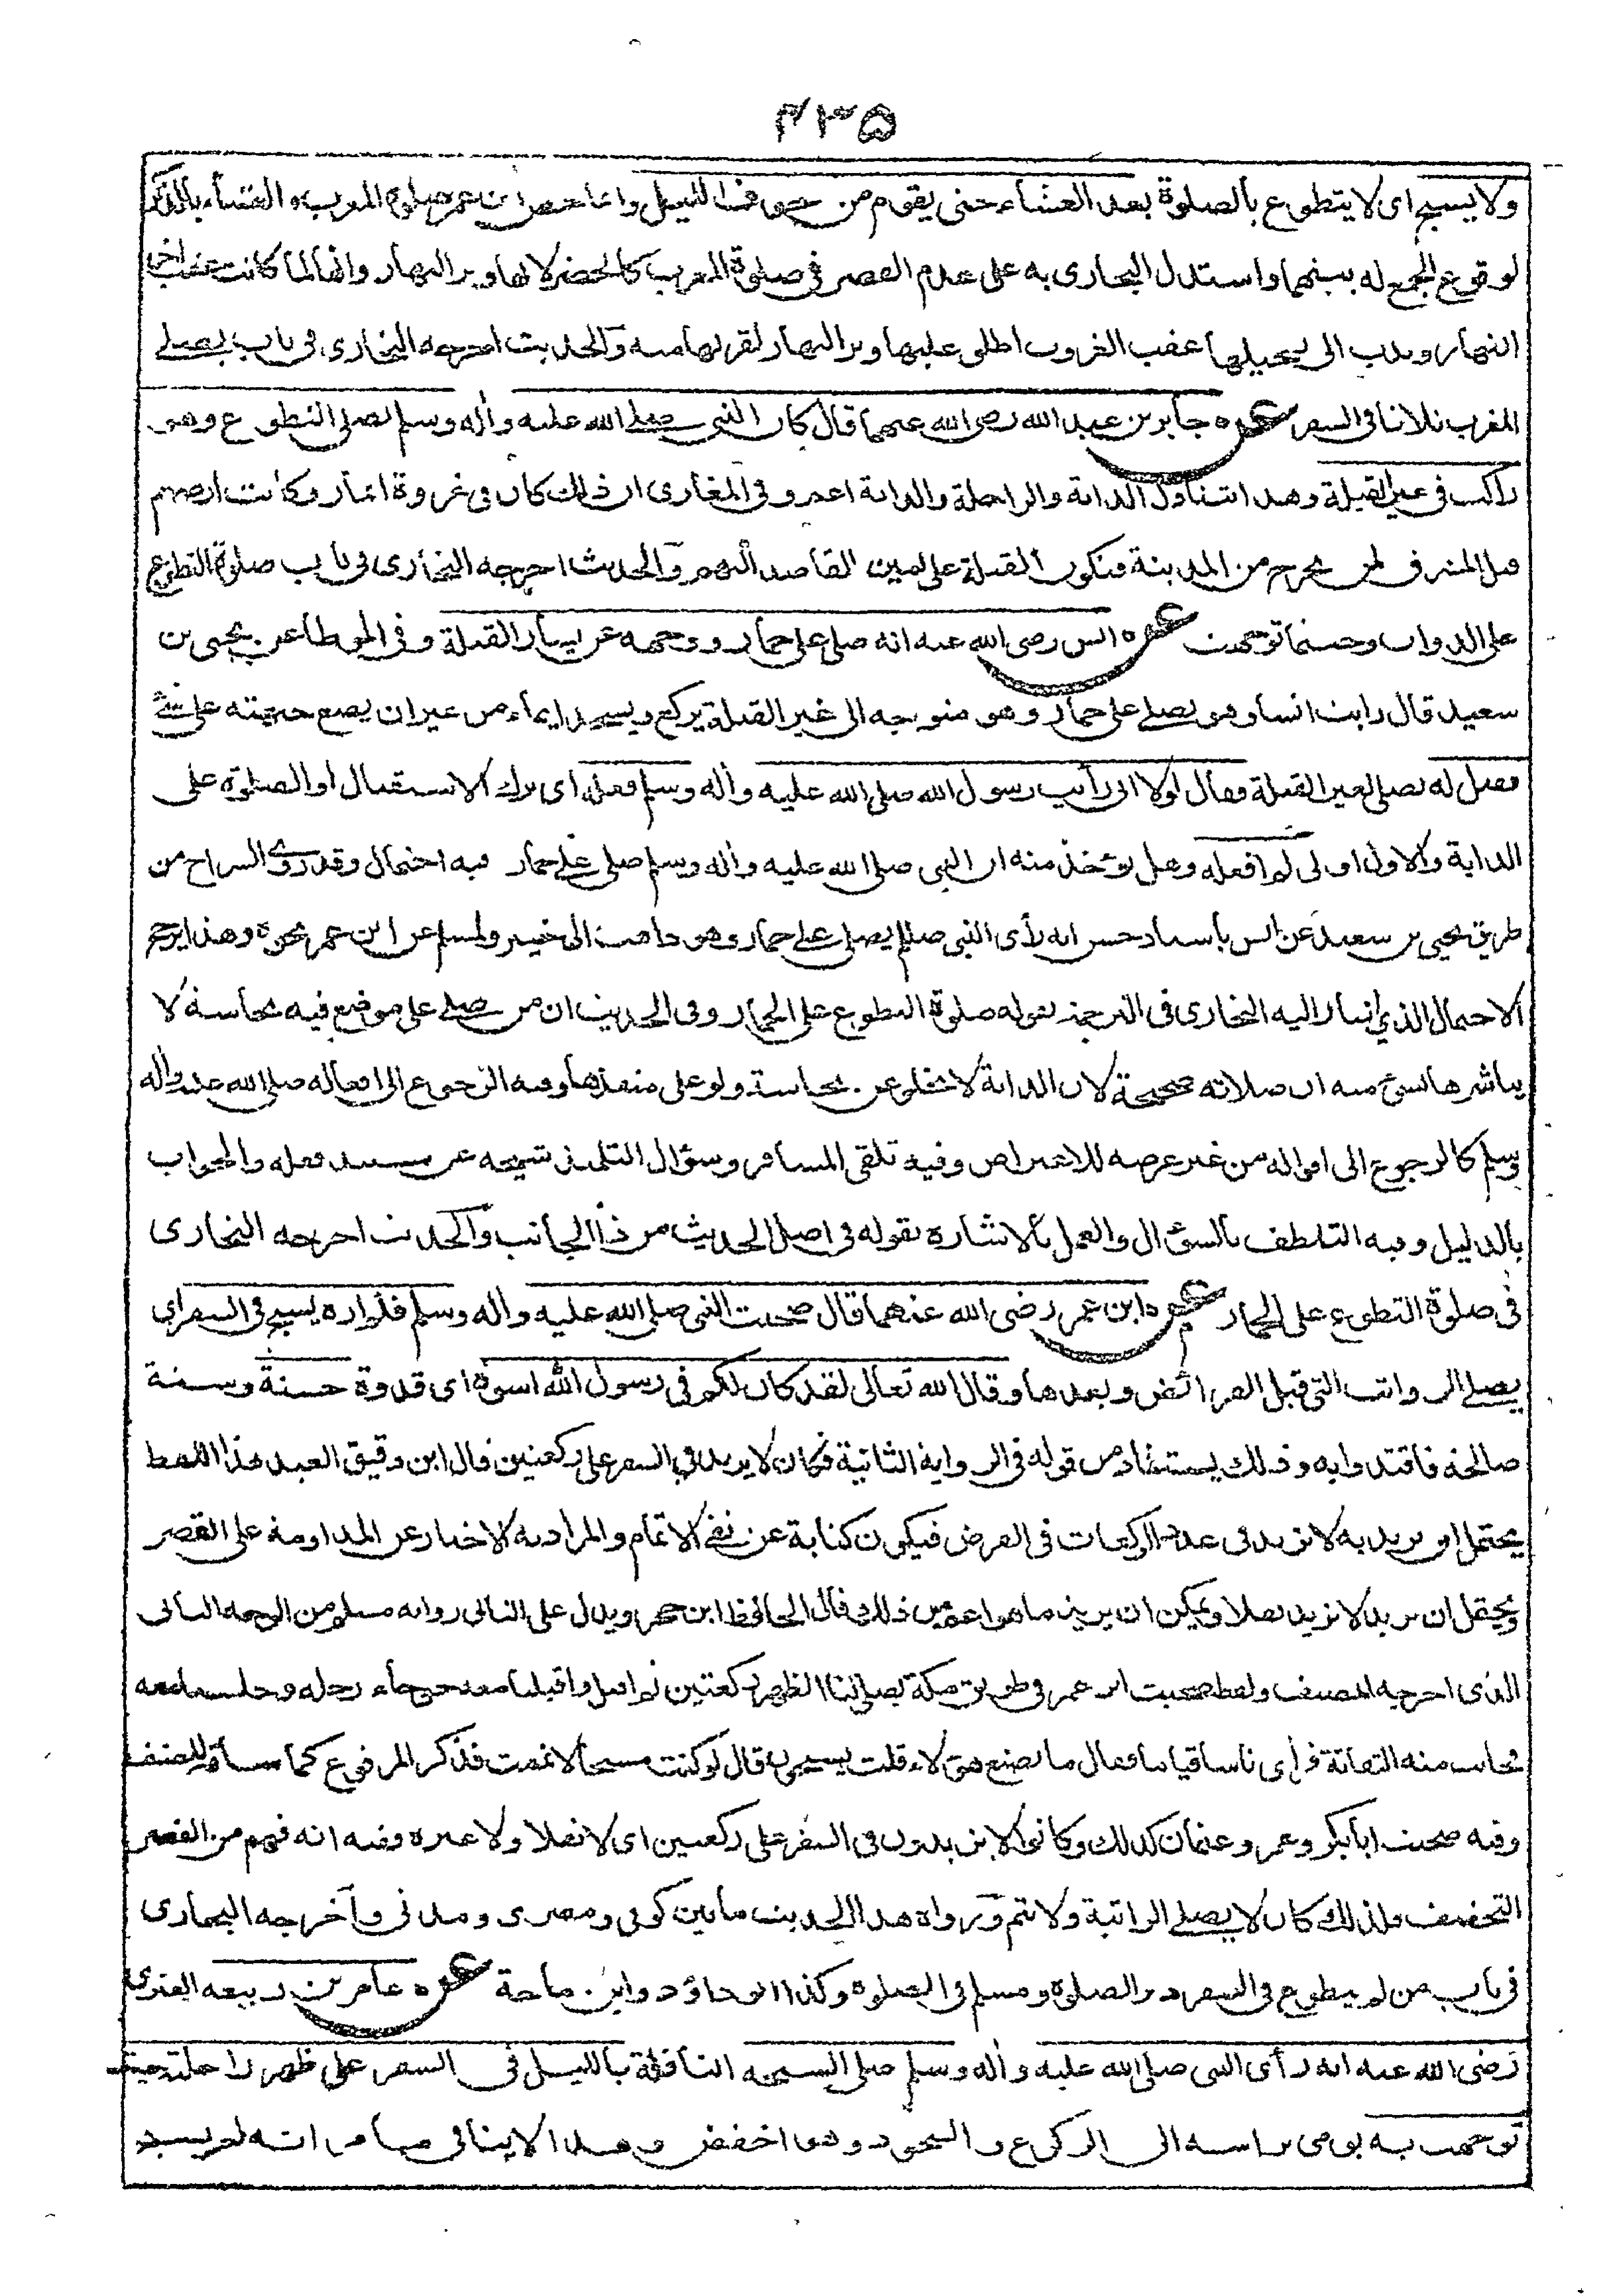 ٢٣٥
ولا يسبح اى لا يتطوع بالصلوة بعد العشاء حتى يقوم من جوف الليل وانما خص ابن عمر صلوة المغرب والعشاء بالذكر
لوقوع الجمع له بينهما واستدل البخارى به على عدم القصر فى صلوة المغرب كالحضر لانها وتر النهار وانها لما كانت عقب اخر
النهار وندب الى تعجيلها عقب الغروب اطلق عليها وتر النهار لقربها منه والحديث اخرجه البخارى فى باب يصلے
المغرب ثلاثا فى السفر عن جابر بن عبد الله رضى الله عنهما قال كان النبى صلے الله عليه واٰله وسلم يصلى التطوع وهو
راكب فى غير القبلة وهذا يتناول الدابة والراحلة والدابة اعم وفى المغازى ان ذلك كان فى غزوة انمار وكانت ارضهم
قبل المشرق لمن يخرج من المدينة فتكون القبلة على يمين القاصد اليهم والحديث اخرجه البخارى فى باب صلوة التطوع
على الدواب وحيثما توجهت عن انس رضى الله عنه انه صلى على حمار ووجهه عن يسار القبلة وفى الموطا عن يحيى بن
سعيد قال رايت انسا وهو يصلے على حمار وهو متوجه الى غير القبلة يركع ويسجد ايماء من غير ان يضع جبهته على شئ
فقيل له تصلى لغير القبلة فقال لولا انى رأيت رسول الله صلى الله عليه واٰله وسلم فعله اى ترك الاستقبال او الصلوة على
الدابة والاول اولى لم افعله وهل يؤخذ منه ان النبى صلى الله عليه واٰله وسلم صلى على حمار فيه احتمال وقد روى السراج من
طريق يحيى بن سعيد عن انس باسناد حسن انه رأى النبى صللم يصلى على حمار وهو ذاهب الى خيبر ولمسلم عن ابن عمر نحوه وهذا يرجح
الاحتمال الذى اشار اليه البخارى فى الترجمة بقوله صلوة التطوع على الحمار وفى الحديث ان من صلے على موضع فيه نجاسة لا
يباشرها بشئ منه ان صلاته صحيحة لان الدابة لا تخلو عن نجاسة ولو على منفذها وفيه الرجوع الى افعاله صلى الله عليه واٰله
وسلم كالرجوع الى اقواله من غير عرضه للاعتراض وفيه تلقى المسافر وسؤال التلميذ شيخه عن مستند فعله والجواب
بالدليل وفيه التلطف بالسؤال والعمل بالاشارة بقوله فى اصل الحديث من ذا الجانب والحديث اخرجه البخارى
فى صلوة التطوع على الحمار عن ابن عمر رضى الله عنهما قال صحبت النبى صلى الله عليه واٰله وسلم فلم اره يسبح فى السفر اى
يصلے الرواتب التى قبل الفرائض وبعدها وقال الله تعالى لقد كان لكم فى رسول الله اسوة اى قدوة حسنة وسنة
صالحة فاقتدوا به وذلك يستفاد من قوله فى الرواية الثانية فكان لا يزيد فى السفر على ركعتين قال ابن دقيق العيد هذا اللفظ
يحتمل ان يريد به لا نزيد فى عدد الركعات فى الفرض فيكون كناية عن نفى الاتمام والمراد به الاخبار عن المداومة على القصر
ويحتمل ان يريد لا نزيد نفلا ويمكن ان يريد ما هو اعم من ذلك قال الحافظ ابن حجر ويدل على الثانى رواية مسلم من الوجه الثانى
الذى اخرجه المصنف ولفظه صحبت ابن عمر فى طريق مكة يصلى لنا الظهر ركعتين ثم اقبل واقبلنا معه حتى جاء رحله وجلسنا معه
فحانت منه التفاتة فرأى ناسا قياما فقال ما يصنع هؤلاء قلت يسبحون قال لو كنت مسبحا لاتممت فذكر المرفوع كما ساقه المصنف
وفيه صحبت ابا بكر وعمر وعثمان كذلك وكانوا لا يزيدون فى السفر على ركعتين اى لا نفلا ولا غيره وفيه انه فهم من القصر
التخفيف فلذلك كان لا يصلے الراتبة ولا يتم ورواة هذا الحديث مابين كوفى ومصرى ومدنى واخرجه البخارى
فى باب من لم يتطوع فى السفر دبر الصلوة ومسلم فى الصلوة وكذا ابو داؤد وابن ماجة عن عامر بن ربيعه العنزى
رضى الله عنه انه رأى النبى صلى الله عليه واٰله وسلم صلى السبحه النافلة بالليل فى السفر على ظهر راحلته حيث
توجهت به يومى براسه الى الركوع والسجود وهو اخفض وهذا لا ينافى ما مر انه لم يسبح